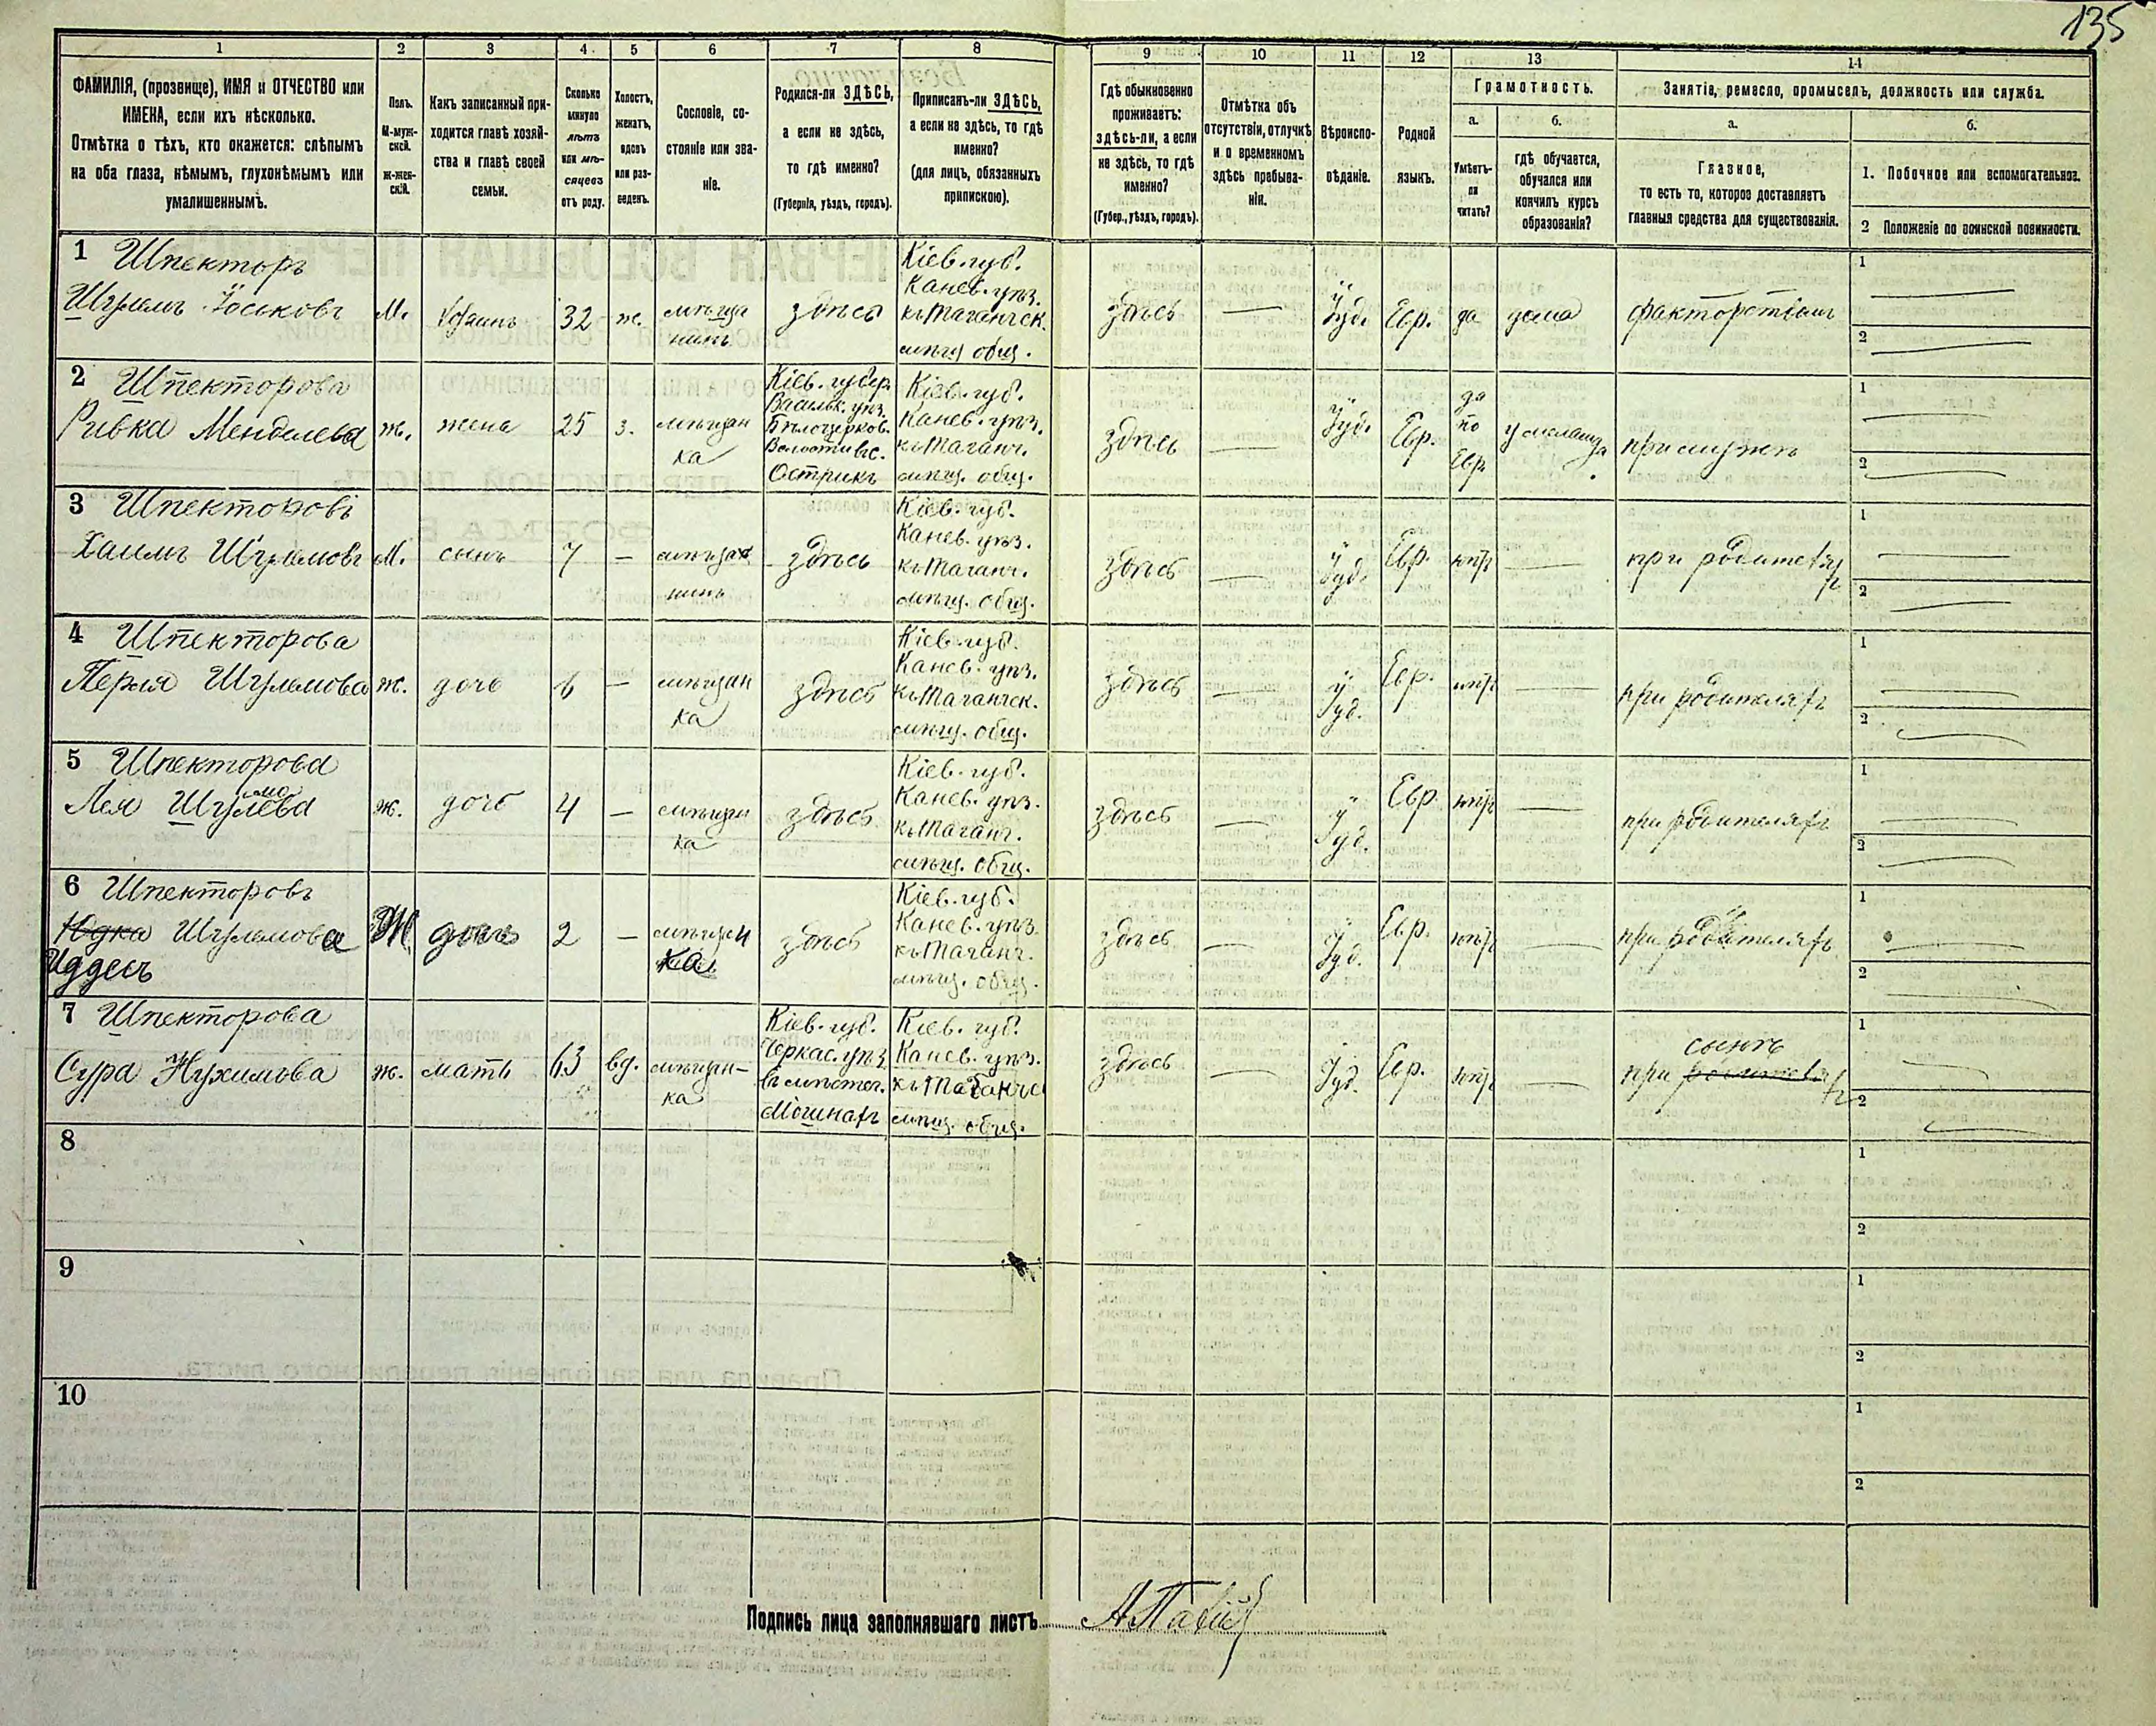 135
1 2 3 4 5 6 7 8 9 10 11 12 13 14
ФАМИЛІЯ, (прозвище), ИМЯ и ОТЧЕСТВО или
ИМЕНА, если ихъ нѣсколько.
Отмѣтка о тѣхъ, кто окажется: слѣпымъ
на оба глаза, нѣмымъ, глухонѣмымъ или
умалишеннымъ.
Полъ.
М-муж-
ской.
Ж-жен-
скій.
Какъ записанный при-
ходится главѣ хозяй-
ства и главѣ своей
семьи.
Сколько
минуло
лѣтъ
или мѣ-
сяцевъ
отъ роду.
Холостъ,
женатъ,
вдовъ
или раз-
веденъ.
Сословіе, со-
стояніе или зва-
ніе.
Родился-ли ЗДѢСЬ,
а если не здѣсь,
то гдѣ именно?
(Губернія, уѣздъ, городъ).
Приписанъ-ли ЗДѢСЬ,
а если не здѣсь, то гдѣ
именно?
(для лицъ, обязанныхъ
припискою).
Гдѣ обыкновенно
проживаетъ:
здѣсь-ли, а если
не здѣсь, то гдѣ
именно?
(Губер., уѣздъ, городъ).
Отмѣтка объ
отсутствіи, отлучкѣ
и о временномъ
здѣсь пребыва-
ніи.
Вѣроиспо-
вѣданіе.
Родной
языкъ.
Грамотность.
а.
Умѣетъ-
ли
читать?
б.
гдѣ обучается,
обучался или
кончилъ курсъ
образованія?
Занятіе, ремесло, промыселъ, должность или служба.
а.
Главное,
то есть то, которое доставляетъ
главныя средства для существованія.
б.
1. Побочное или вспомогательное.
2 Положеніе по воинской повинности.
1 Шпекторъ
Шулемъ Іоськовъ
М.
Хозяинъ
32
ж.
мѣща
нинъ
здѣсь
Кіев. губ.
Канев. уѣз.
къ Таганческ.
мѣщ общ.
здѣсь
—
Іуд.
Евр.
да
дома
факторствомъ
1 —
2 —
2 Шпекторова
Ривка Менделева
ж.
жена
25
з.
мѣщан
ка
Кіев. губер.
Васильк. уѣз.
Бѣлоцерков.
Волости въ с.
Острикъ
Кіев. губ.
Канев. уѣз.
къ Таганч.
мѣщ. общ.
здѣсь
—
Іуд.
Евр.
да
по
Евр
у меламда
при мужѣ
1 —
2 —
3 Шпекторовъ
Хаимъ Шулемовъ
М.
сынъ
7
—
мѣща
нинъ
здѣсь
Кіев. губ.
Канев. уѣз.
къ Таганч.
мѣщ. общ.
здѣсь
—
Іуд.
Евр.
нѣтъ
—
при родителях
1 —
2 —
4 Шпекторова
Перля Шулемова
ж.
дочь
6
—
мѣщан
ка
здѣсь
Кіев. губ.
Канев. уѣз.
къ Таганческ.
мѣщ. общ.
здѣсь
—
Іуд.
Евр.
нѣтъ
—
при родителяхъ
1 —
2 —
5 Шпекторова
Лея Шулемова
ж.
дочь
4
—
мѣщан
ка
здѣсь
Кіев. губ.
Канев. уѣз.
къ Таганч.
мѣщ. общ.
здѣсь
—
Іуд.
Евр.
нѣтъ
—
при родителяхъ
1 —
2 —
6 Шпекторовъ
Юдка Шулемова
Иддесь
Ж
дочь
2
—
мѣщан
ка
здѣсь
Кіев. губ.
Канев. уѣз.
къ Таганч.
мѣщ. общ.
здѣсь
—
Іуд.
Евр.
нѣтъ
—
при родителяхъ
1 —
2 —
7 Шпекторова
Сура Нухимова
ж.
мать
63
вд.
мѣщан-
ка
Кіев. губ.
Черкас. уѣз
въ мѣстеч.
Мошнахъ
Кіев. губ.
Канев. уѣз.
къ Таганчс
мѣщ. общ.
здѣсь
—
Іуд.
Евр.
нѣтъ
—
сынѣ
при родителях
1 —
2 —
8
1
2
9
1
2
10
1
2
Подпись лица заполнявшаго листъ